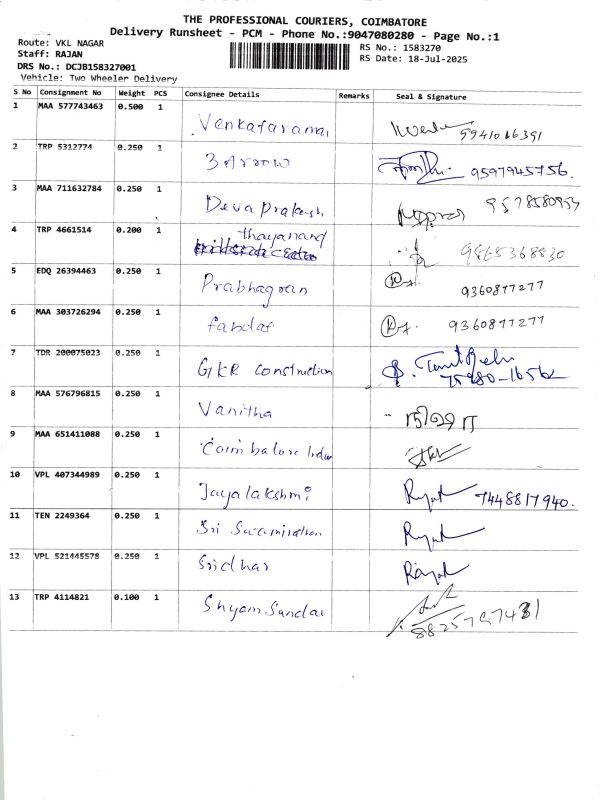 THE PROFESSIONAL COURIERS, COIMBATORE
Delivery Runsheet - PCM - Phone No.:9047080280 - Page No.:1
Route: VKL NAGAR
Staff: RAJAN
DRS No.: DCJB158327001
Vehicle: Two Wheeler Delivery
RS No.: 1583270
RS Date: 18-Jul-2025
S No Consignment No Weight PCS Consignee Details Remarks Seal & Signature
1 MAA 577743463 0.500 1 Venkataraman 9941016391
2 TRP 5312774 0.250 1 3 Arrow 9597945756.
3 MAA 711632784 0.250 1 Deva Prakash
4 TRP 4661514 0.200 1 thayanand 9865368830
5 EDQ 26394463 0.250 1 Prabhagran 9360877277
6 MAA 303726294 0.250 1 9360877277
7 TDR 200075023 0.250 1 GKR Construction
8 MAA 576796815 0.250 1 Vanitha
9 MAA 651411088 0.250 1 Coimbatore
10 VPL 407344989 0.250 1 Jayalakshmi 7448817940.
11 TEN 2249364 0.250 1 Sri
12 VPL 521445578 0.250 1 Sridhar
13 TRP 4114821 0.100 1 Shyam Sundar